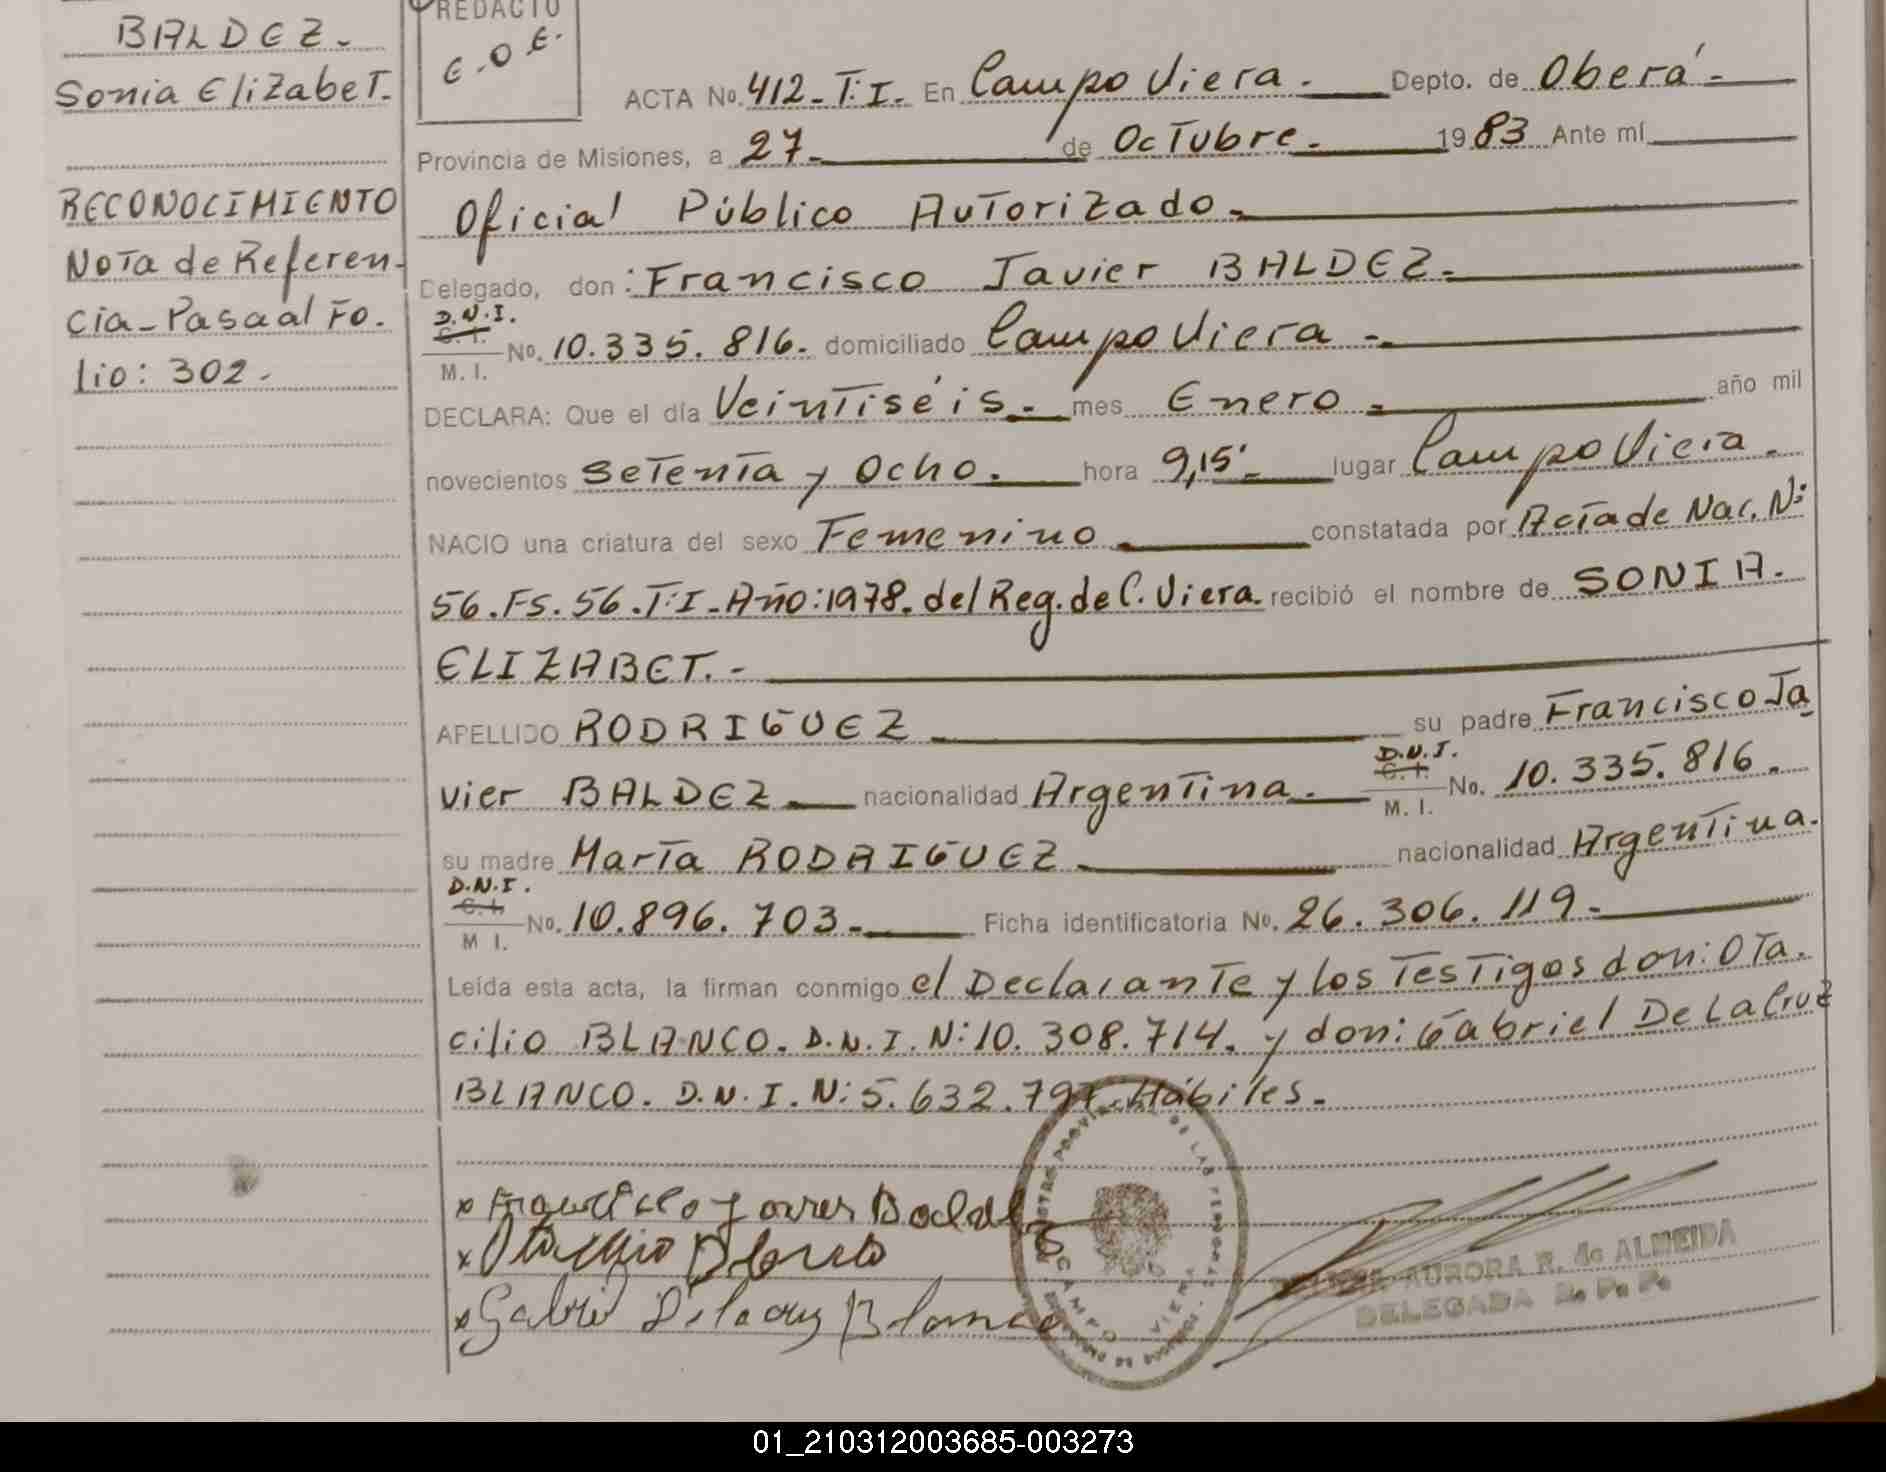 BALDEZ.-
Sonia ElizabeT.
RECONOCIMIENTO
NoTa de Referen-
cia-Pasa al Fo.
lio: 302.
REDACTO
E.O.E.
ACTA No. 412-T:I. En Campo Viera.- Depto. de Oberá.-
Provincia de Misiones, a 27.- de OcTubre.- 1983 Ante mí
Oficial Público AuTorizado.-
Delegado, don: Francisco Javier BALDEZ.-
D.N.I.
C. I.
M. I.
No. 10.335.816. domiciliado Campo Viera.-
DECLARA: Que el día VeinTiséis.- mes Enero.- año mil
novecientos SeTenTa y Ocho.- hora 9,15'- lugar Campo Viera.-
NACIO una criatura del sexo Femenino.- constatada por AcTa de Nac. N:
56.Fs.56.T:I-Año:1978.del Reg.de C.Viera. recibió el nombre de SONIA.
ELIZABET.-
APELLIDO RODRIGUEZ su padre Francisco Ja
vier BALDEZ.- nacionalidad ArgenTina.-
D.N.I.
C. I.
M. I.
No. 10.335.816.
su madre MarTa RODRIGUEZ.- nacionalidad ArgenTina.
D.N.I.
C. I.
M I.
No. 10.896.703.- Ficha identificatoria No. 26.306.119.-
Leída esta acta, la firman conmigo el DeclaranTe y los TesTigos don: OTa.
cilio BLANCO. D.N.I.N:10.308.714. y don: Gabriel De La Cruz
BLANCO. D.N.I.N:5.632.797. Hábiles.-
DE LAS PERSONAS
CAMPO VIERA
AURORA R. de ALMEIDA
DELEGADA R. P. P.
Gabriel Delacruz Blanco
01_210312003685-003273